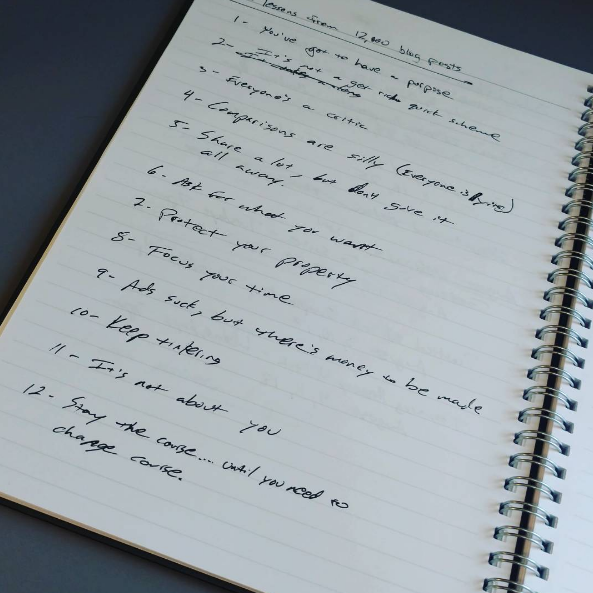 lessons from 12,000 blog posts
1- You've got to have a purpose
2- It's not a get rich quick scheme
3- Everyone's a critic
4- Comparisons are silly (Everyone is lying)
5- Share a lot, but don't give it
all away.
6- Ask for what you want
7- Protect your property
8- Focus your time
9- Ads suck, but where's money to be made
10- Keep tinkering
11- It's not about you
12- Stay the course... until you need to
change course.